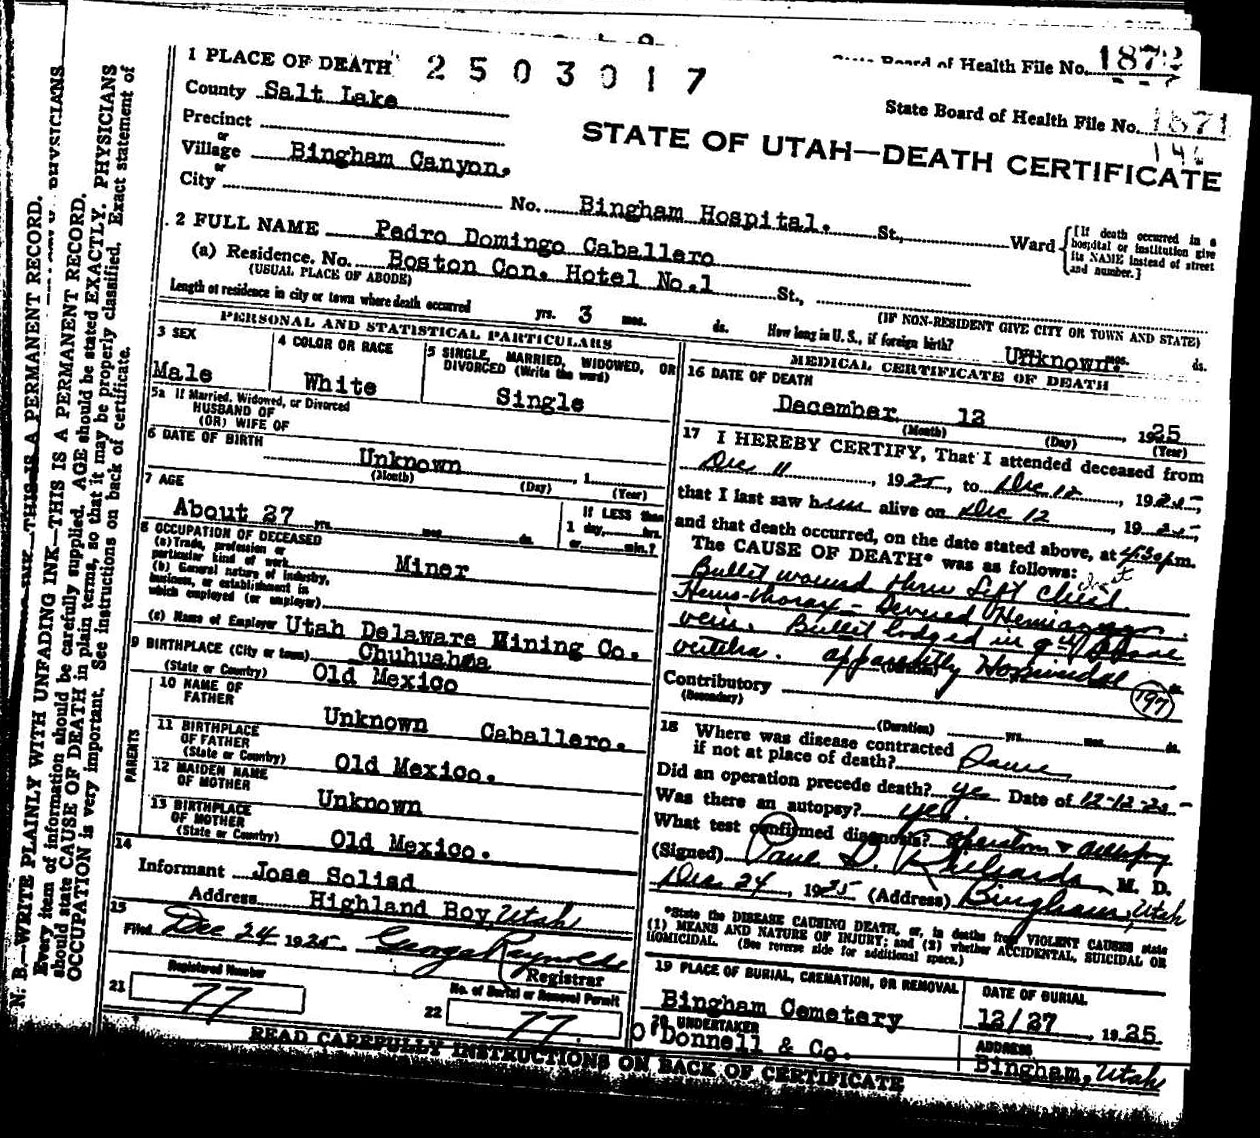 1872
State Board of Health File No.
1 PLACE OF DEATH 2503017
State Board of Health File No. 1871
County Salt Lake
Precinct
or
Village Bingham Canyon.
or
City
STATE OF UTAH—DEATH CERTIFICATE
No. Bingham Hospital. St., Ward
{If death occurred in a hospital or institution give its NAME instead of street and number.}
2 FULL NAME Pedro Domingo Caballero
(a) Residence. No. Boston Con. Hotel No.1 St.,
(USUAL PLACE OF ABODE)
(IF NON-RESIDENT GIVE CITY OR TOWN AND STATE)
Length of residence in city or town where death occurred yrs. 3 mos. ds. How long in U. S., if foreign birth? Unknown. mos. ds.
PERSONAL AND STATISTICAL PARTICULARS
3 SEX
Male
4 COLOR OR RACE
White
5 SINGLE, MARRIED, WIDOWED, OR DIVORCED (Write the word)
Single
5a If Married, Widowed, or Divorced
HUSBAND OF
(OR) WIFE OF
6 DATE OF BIRTH
Unknown 1
(Month) (Day) (Year)
7 AGE
About 27 yrs. mos. ds.
If LESS than
1 day, hrs.
or min.?
8 OCCUPATION OF DECEASED
(a) Trade, profession or
particular kind of work
Miner
(b) General nature of industry,
business, or establishment in
which employed (or employer)
(c) Name of Employer Utah Delaware Mining Co.
9 BIRTHPLACE (City or town) Chuhuahua
(State or Country) Old Mexico
PARENTS
10 NAME OF
FATHER
Unknown Caballero.
11 BIRTHPLACE
OF FATHER
(State or Country) Old Mexico.
12 MAIDEN NAME
OF MOTHER
Unknown
13 BIRTHPLACE
OF MOTHER
(State or Country) Old Mexico.
14
Informant Jose Soliad
Address Highland Boy, Utah
15
Filed Dec 24 1925 George Reynolds
Registrar
Registered Number
21 77
No. of Burial or Removal Permit
22 77
MEDICAL CERTIFICATE OF DEATH
16 DATE OF DEATH
December 12, 1925
(Month) (Day) (Year)
17 I HEREBY CERTIFY, That I attended deceased from
Dec 11, 1925, to Dec 12, 1925,
that I last saw him alive on Dec 12, 1925,
and that death occurred, on the date stated above, at 4:30 p m.
The CAUSE OF DEATH* was as follows:
Bullet wound thru left chest.
Hemo-thorax - Hemiazygos
vein. Bullet lodged in 9th
vertebra. apparently Homicidal
(Duration)
197
Contributory
(Secondary)
(Duration) yrs. mos. ds.
18 Where was disease contracted
if not at place of death? Same
Did an operation precede death? yes Date of 12-12-25
Was there an autopsy? yes.
What test confirmed diagnosis? operation & autopsy
(Signed) Paul S. Richards, M. D.
Dec. 24, 1925 (Address) Bingham, Utah
*State the DISEASE CAUSING DEATH, or, in deaths from VIOLENT CAUSES state
(1) MEANS AND NATURE OF INJURY; and (2) whether ACCIDENTAL, SUICIDAL OR
HOMICIDAL. (See reverse side for additional space.)
19 PLACE OF BURIAL, CREMATION, OR REMOVAL
Bingham Cemetery
DATE OF BURIAL
12/27, 1925.
20 UNDERTAKER
O'Donnell & Co.
ADDRESS
Bingham, Utah
READ CAREFULLY INSTRUCTIONS ON BACK OF CERTIFICATE
N. B.—WRITE PLAINLY WITH UNFADING INK—THIS IS A PERMANENT RECORD.
Every item of information should be carefully supplied. AGE should be stated EXACTLY. PHYSICIANS
should state CAUSE OF DEATH in plain terms, so that it may be properly classified. Exact statement of
OCCUPATION is very important. See instructions on back of certificate.